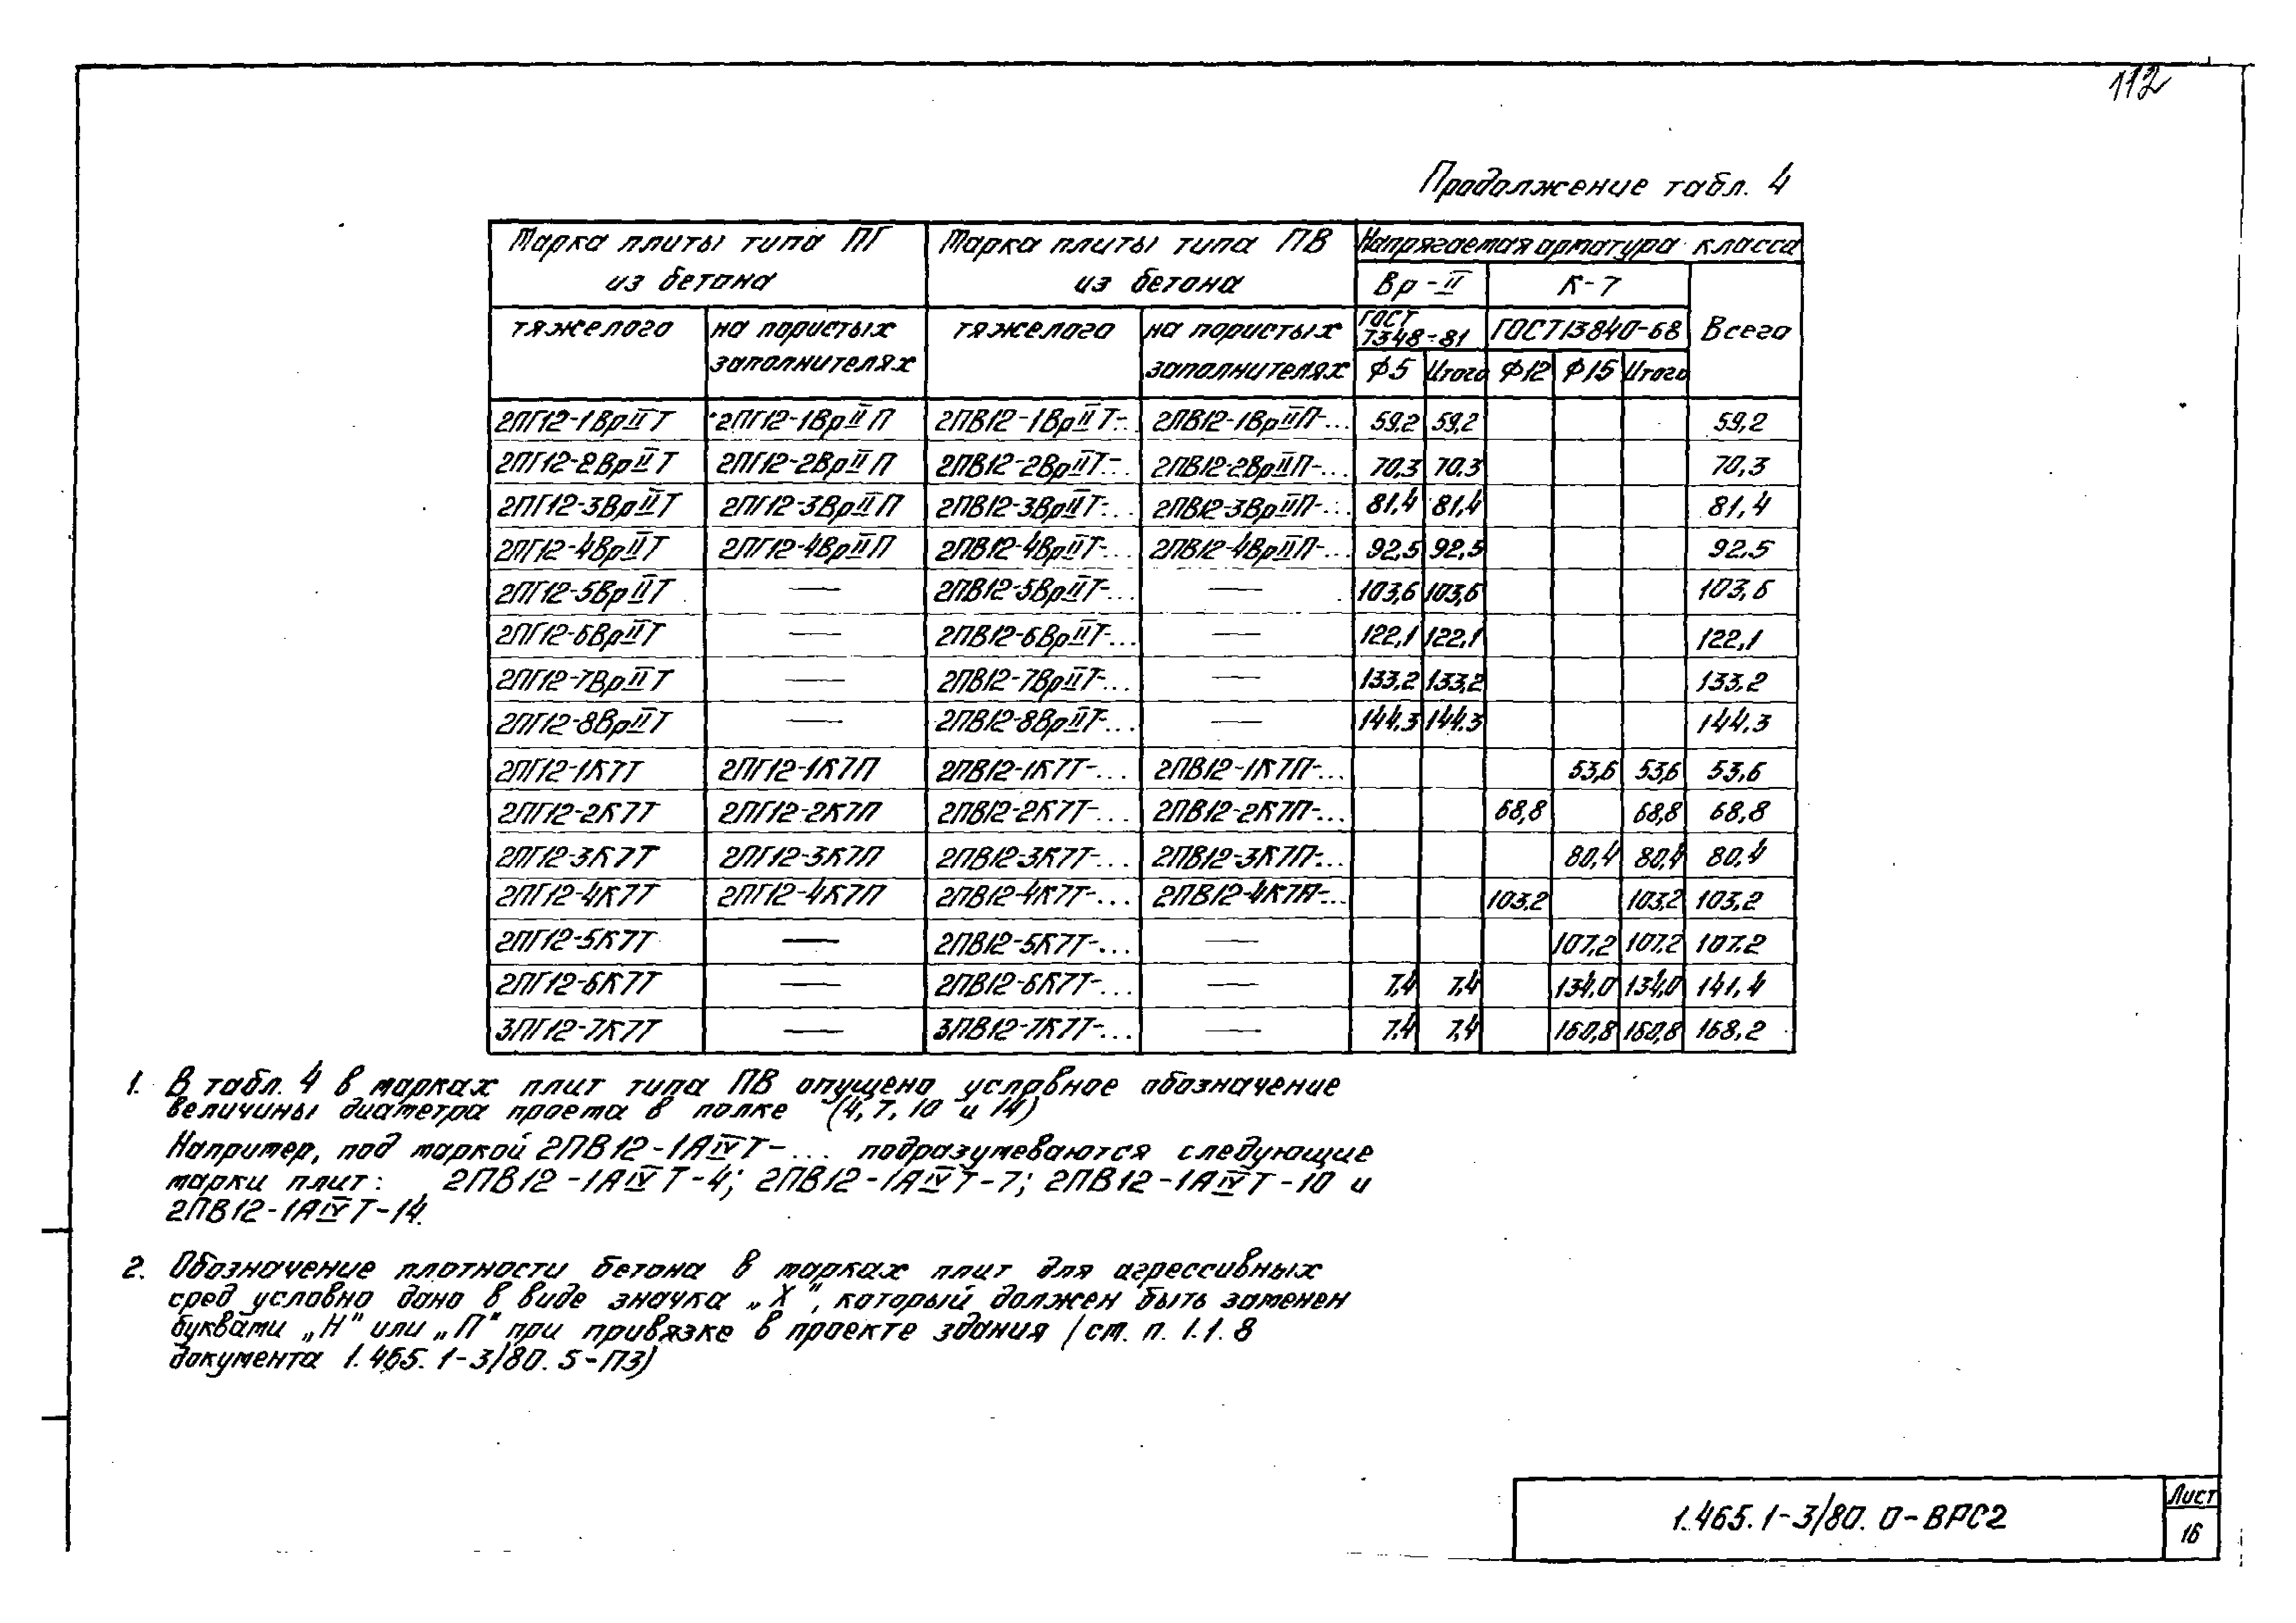 112
Продолжение табл. 4
Марка плиты типа ПГ из бетона Марка плиты типа ПВ из бетона Напрягаемая арматура класса
Вр-II К-7 Всего
тяжелого на пористых заполнителях тяжелого на пористых заполнителях ГОСТ 7348-81 ГОСТ 13840-68
Ф5 Итого Ф12 Ф15 Итого
2ПГ12-1ВрIIТ 2ПГ12-1ВрIIП 2ПВ12-1ВрIIТ-... 2ПВ12-1ВрIIП-... 59,2 59,2 59,2
2ПГ12-2ВрIIТ 2ПГ12-2ВрIIП 2ПВ12-2ВрIIТ-... 2ПВ12-2ВрIIП-... 70,3 70,3 70,3
2ПГ12-3ВрIIТ 2ПГ12-3ВрIIП 2ПВ12-3ВрIIТ-... 2ПВ12-3ВрIIП-... 81,4 81,4 81,4
2ПГ12-4ВрIIТ 2ПГ12-4ВрIIП 2ПВ12-4ВрIIТ-... 2ПВ12-4ВрIIП-... 92,5 92,5 92,5
2ПГ12-5ВрIIТ — 2ПВ12-5ВрIIТ-... — 103,6 103,6 103,6
2ПГ12-6ВрIIТ — 2ПВ12-6ВрIIТ-... — 122,1 122,1 122,1
2ПГ12-7ВрIIТ — 2ПВ12-7ВрIIТ-... — 133,2 133,2 133,2
2ПГ12-8ВрIIТ — 2ПВ12-8ВрIIТ-... — 144,3 144,3 144,3
2ПГ12-1К7Т 2ПГ12-1К7П 2ПВ12-1К7Т-... 2ПВ12-1К7П-... 53,6 53,6 53,6
2ПГ12-2К7Т 2ПГ12-2К7П 2ПВ12-2К7Т-... 2ПВ12-2К7П-... 68,8 68,8 68,8
2ПГ12-3К7Т 2ПГ12-3К7П 2ПВ12-3К7Т-... 2ПВ12-3К7П-... 80,4 80,4 80,4
2ПГ12-4К7Т 2ПГ12-4К7П 2ПВ12-4К7Т-... 2ПВ12-4К7П-... 103,2 103,2 103,2
2ПГ12-5К7Т — 2ПВ12-5К7Т-... — 107,2 107,2 107,2
2ПГ12-6К7Т — 2ПВ12-6К7Т-... — 7,4 7,4 134,0 134,0 141,4
3ПГ12-7К7Т — 3ПВ12-7К7Т-... — 7,4 7,4 160,8 160,8 168,2
1. В табл. 4 в марках плит типа ПВ опущено условное обозначение
величины диаметра проема в полке (4, 7, 10 и 14)
Например, под маркой 2ПВ12-1АIVТ-... подразумеваются следующие
марки плит: 2ПВ12-1АIVТ-4; 2ПВ12-1АIVТ-7; 2ПВ12-1АIVТ-10 и
2ПВ12-1АIVТ-14.
2. Обозначение плотности бетона в марках плит для агрессивных
сред условно дано в виде значка „Х", который должен быть заменен
буквами „Н" или „П" при привязке в проекте здания /см. п. 1.1.8
документа 1.465.1-3/80.5-ПЗ)
1.465.1-3/80.0-ВРС2
Лист
16